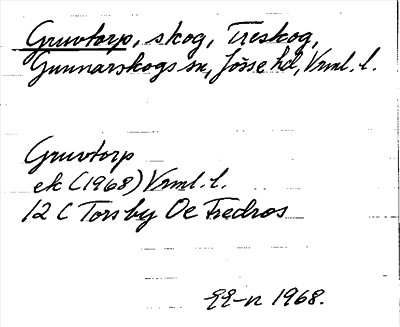 Gruvtorp, skog, Treskog,
Gunnarskogs sn, Jösse hd, Vrml. l.
Gruvtorp
ek (1968) Vrml. l.
12 C Torsby Oe Fredros
1968.